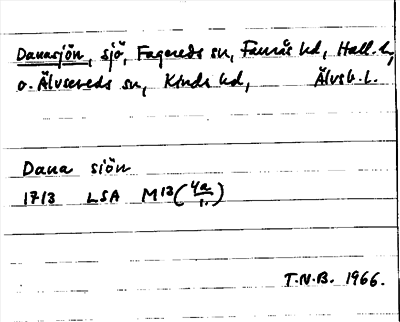 Danasjön, sjö, Fagereds sn, Faurås hd, Hall. l,
o. Älvsereds sn, Kinds hd, Älvsb. l.
Dana siön
1713 LSA M13(4a/1.)
T.N.B. 1966.